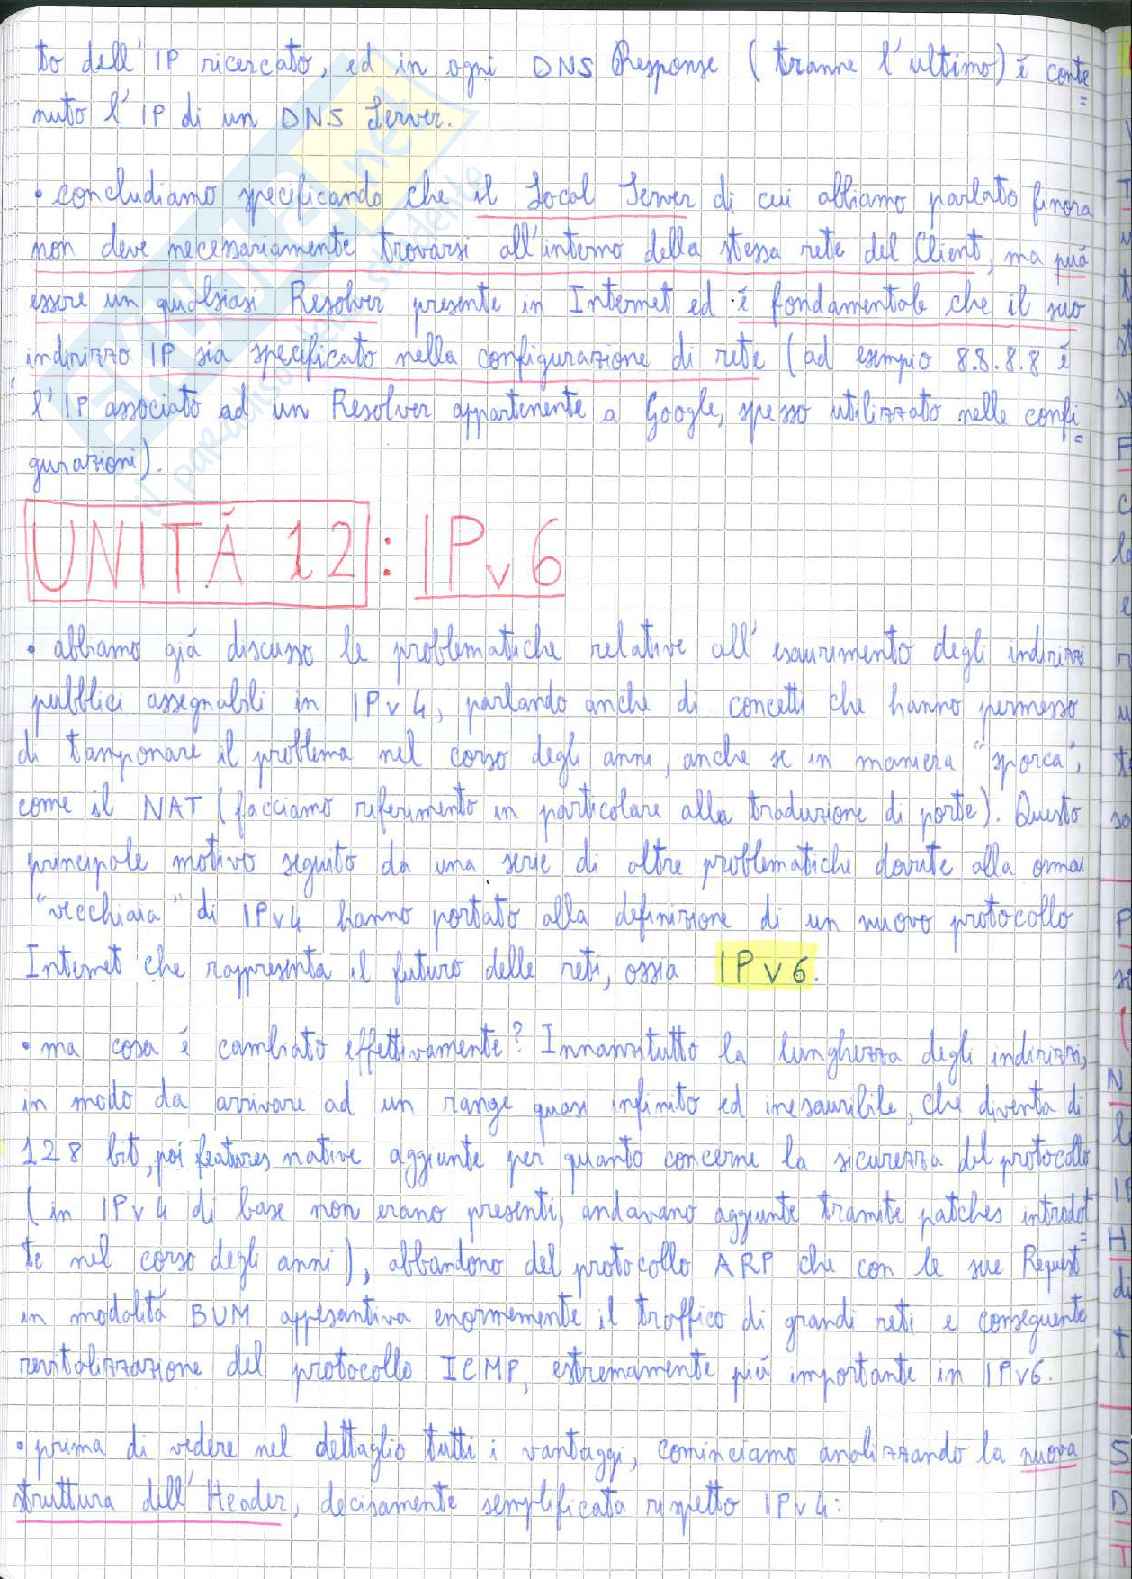 to dell'IP ricercato, ed in ogni DNS Response (tranne l'ultimo) è conte=
nuto l'IP di un DNS Server.
• concludiamo specificando che il Local Server di cui abbiamo parlato finora
non deve necessariamente trovarsi all'interno della stessa rete del Client, ma può
essere un qualsiasi Resolver presente in Internet ed è fondamentale che il suo
indirizzo IP sia specificato nella configurazione di rete (ad esempio 8.8.8.8 è
l'IP associato ad un Resolver appartenente a Google, spesso utilizzato nelle confi=
gurazioni).
UNITÀ 12: IPv6
• abbiamo già discusso le problematiche relative all'esaurimento degli indirizzi
pubblici assegnabili in IPv4, parlando anche di concetti che hanno permesso
di tamponare il problema nel corso degli anni, anche se in maniera "sporca",
come il NAT (facciamo riferimento in particolare alla traduzione di porte). Questo
principale motivo seguito da una serie di altre problematiche dovute alla ormai
"vecchiaia" di IPv4 hanno portato alla definizione di un nuovo protocollo
Internet che rappresenta il futuro delle reti, ossia IPv6.
• ma cosa è cambiato effettivamente? Innanzitutto la lunghezza degli indirizzi,
in modo da arrivare ad un range quasi infinito ed inesauribile, che diventa di
128 bit, poi features native aggiunte per quanto concerne la sicurezza del protocollo
(in IPv4 di base non erano presenti, andavano aggiunte tramite patches introdot=
te nel corso degli anni), abbandono del protocollo ARP che con le sue Request
in modalità BUM appesantiva enormemente il traffico di grandi reti e conseguente
revitalizzazione del protocollo ICMP, estremamente più importante in IPv6.
• prima di vedere nel dettaglio tutti i vantaggi, cominciamo analizzando la nuova
struttura dell'Header, decisamente semplificata rispetto IPv4: